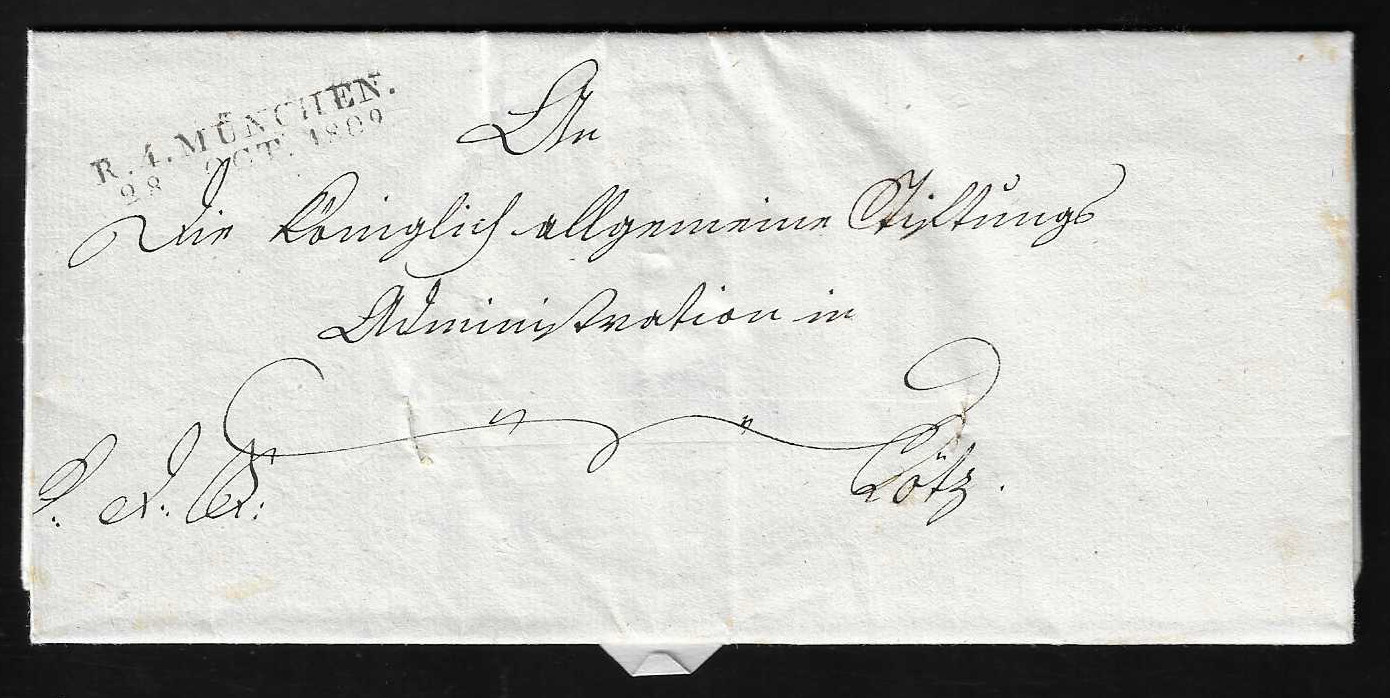 R. 4. MÜNCHEN.
28 OCT. 1809
An
Die Königlich allgemeine Stiftungs
Administration in
Tölz.